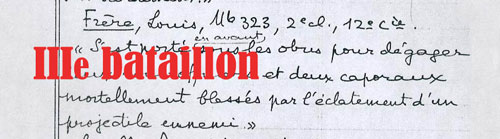 Frère, Louis, Mle 323, 2e cl., 12e Cie.
« S'est porté en avant, sous les obus pour dégager
IIIe bataillon
et deux caporaux
mortellement blessés par l'éclatement d'un
projectile ennemi. »